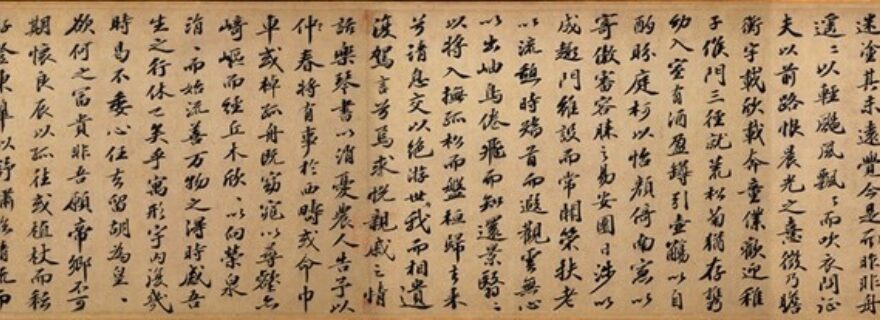 迷塗其未遠覺今是而昨非舟
遥〻以輕颺風飄〻而吹衣問征
夫以前路恨晨光之熹微乃瞻
衡宇載欣載奔童僕歡迎稚
子候門三徑就荒松菊猶存攜
幼入室有酒盈罇引壺觴以自
酌眄庭柯以怡顏倚南窓以
寄傲審容膝之易安園日涉以
成趣門雖設而常關策扶老
以流憩時矯首而遐觀雲無心
以出岫鳥倦飛而知還景翳〻
以將入撫孤松而盤桓歸去来
兮請息交以絶游世我而相遺
復駕言兮焉求悅親戚之情
話樂琴書以消憂農人告予以
仲春將有事於西疇或命巾
車或棹孤舟既窈窕以尋壑亦
崎嶇而經丘木欣〻以向榮泉
涓〻而始流善万物之得時感吾
生之行休已矣乎寓形宇内復幾
時曷不委心任去留胡為皇〻
欲何之冨貴非吾願帝鄉不可
期懷良辰以孤往或植杖而耘
登東皋以舒嘯臨清流而